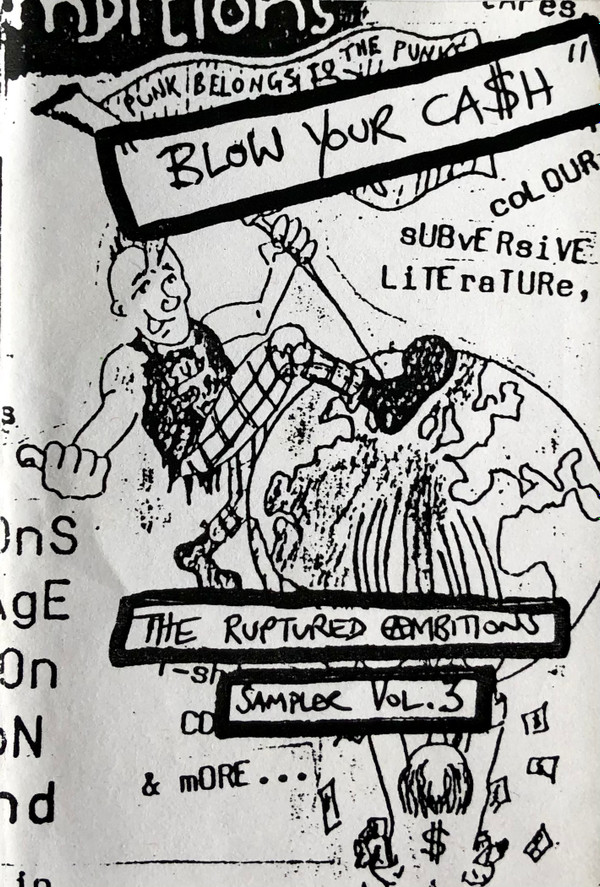 tAPes
PUNK BELONGS TO THE PUNX
"BLOW YOUR CA$H"
COLOUR
sUBvERsiVE
LiTEraTURe,
s
OnS
AgE
On
oN
nd
THE RUPTURED AMBITIONS
T-sh
SAMPLER VOL.3
CD
& mORE...
$
in